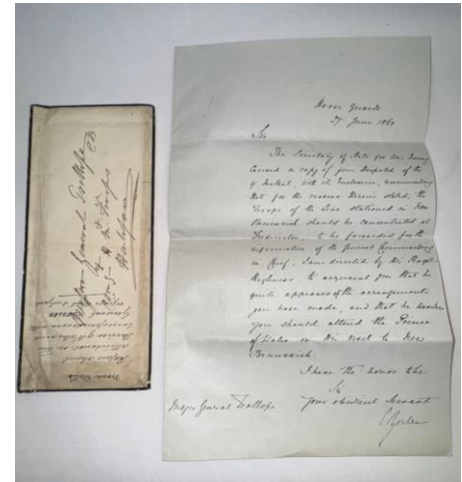 Major General Trollope CB
&c &c
Comg H. M. Troops
Halifax
Horse Guards
27 June 1860
Sir
The Secretary of State for War having
caused a copy of your Despatch of the
9 Instant, with its Enclosure, recommending
that for the reasons therein stated, the
Troops of the Line stationed in New
Brunswick should be concentrated at
Fredericton, to be forwarded for the
information of the General Commanding
in Chief. I am directed by His Royal
Highness to acquaint you that he
quite approves of the arrangements
you have made, and that he
you should attend the Prince
of Wales on his visit to New
Brunswick.
I have the honor to be
Sir
Your obedient Servant
Major General Trollope